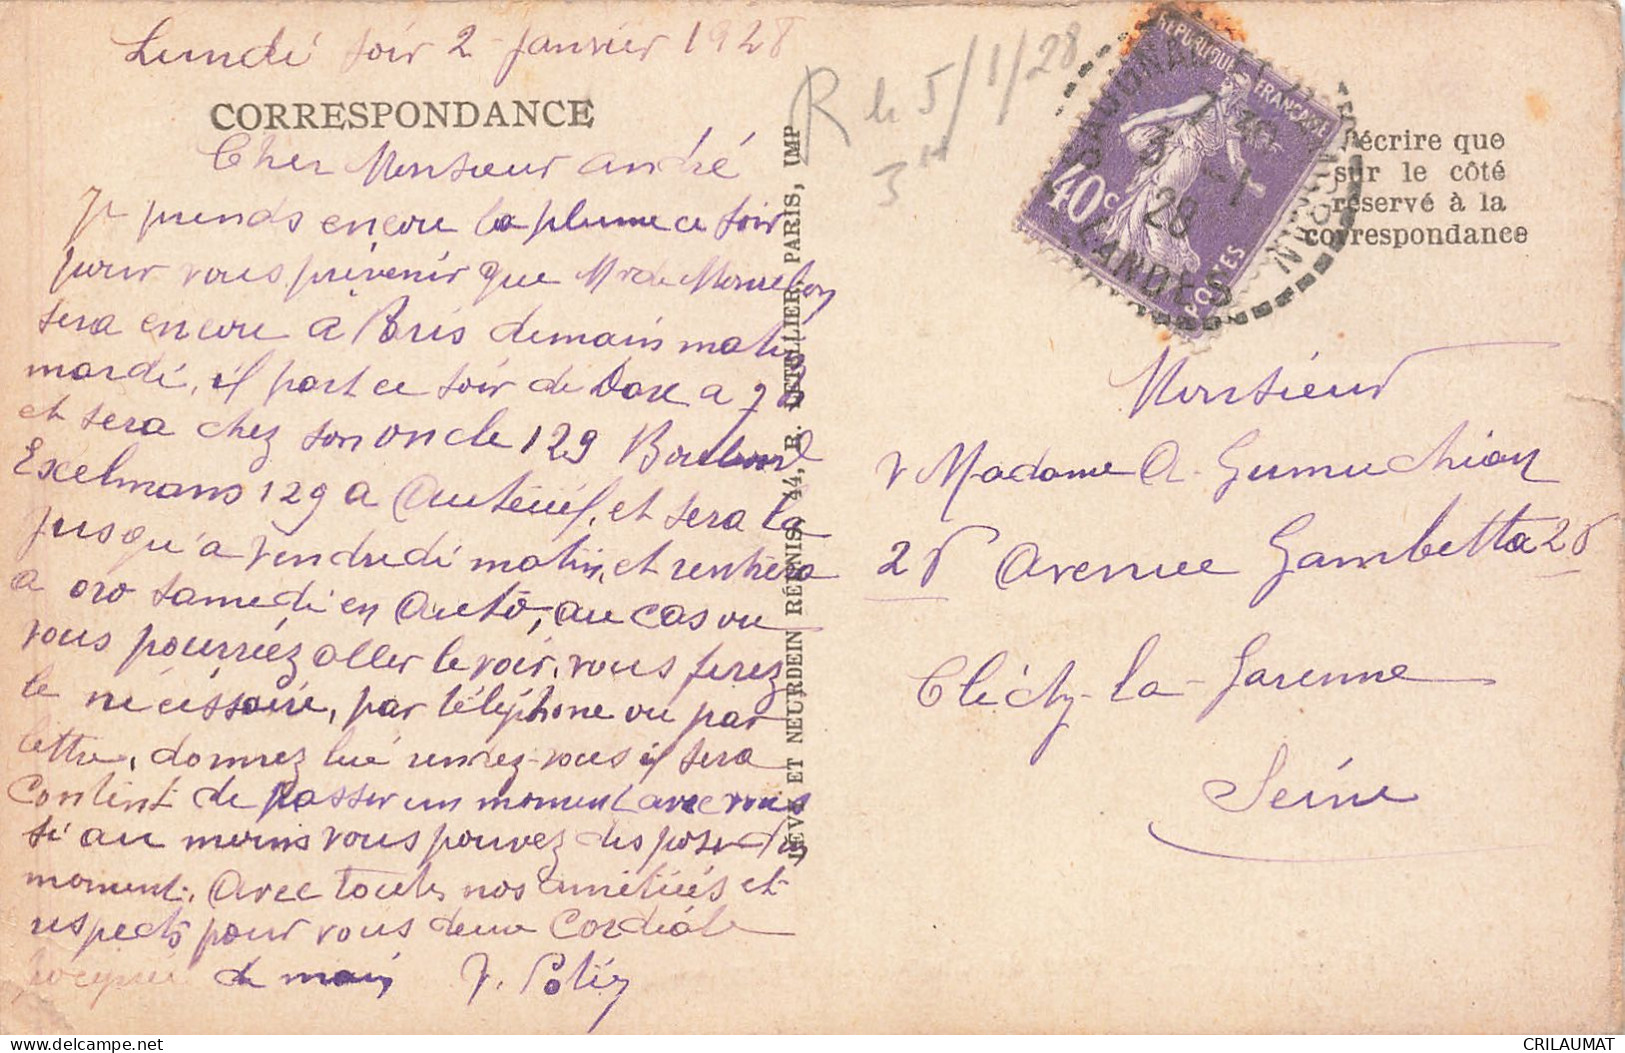 Lundi soir 2 janvier 1928
CORRESPONDANCE
Cher Monsieur André
Je prends encore la plume ce soir
pour vous prévenir que Mr de
sera encore à Paris demain matin
mardi, il part ce soir de Dax a 7 h
et sera chez son oncle 129 Boulevard
Exelmans 129 a Auteuil, et sera la
jusqu'a vendredi matin, et rentrera
a oro samedi en auto, au cas ou
vous pourriez aller le voir, vous ferez
le nécéssaire, par téléphone ou par
lettre, donnez lui rendez-vous il sera
content de passer un moment avec vous
si au moins vous pouvez disposer d'un
moment. Avec toutes nos amitiés et
respects pour vous deux Cordiale
poignée de main J. Potin
LÉVY ET NEURDEIN RÉUNIS, 44, R. LETELLIER, PARIS, IMP
R le 5/1/28
3 H
RÉPUBLIQUE FRANÇAISE
40c
POSTES
7 30
3 -1
28
LANDES
écrire que
sur le côté
réservé à la
correspondance
Monsieur
& Madame A. Gumuchian
28 Avenue Gambetta 28
Clichy-la-Garenne
Seine
CRILAUMAT